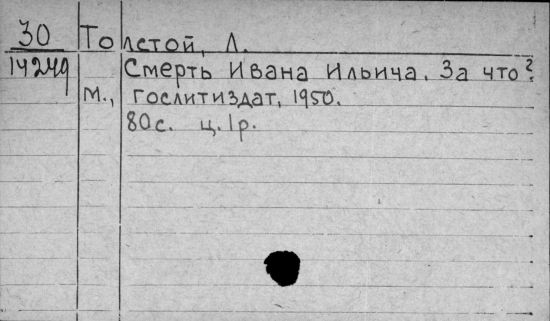 30 Толстой, Л.
14249 Смерть Ивана Ильича. За что?
М., Гослитиздат, 1950.
80с. ц. 1р.